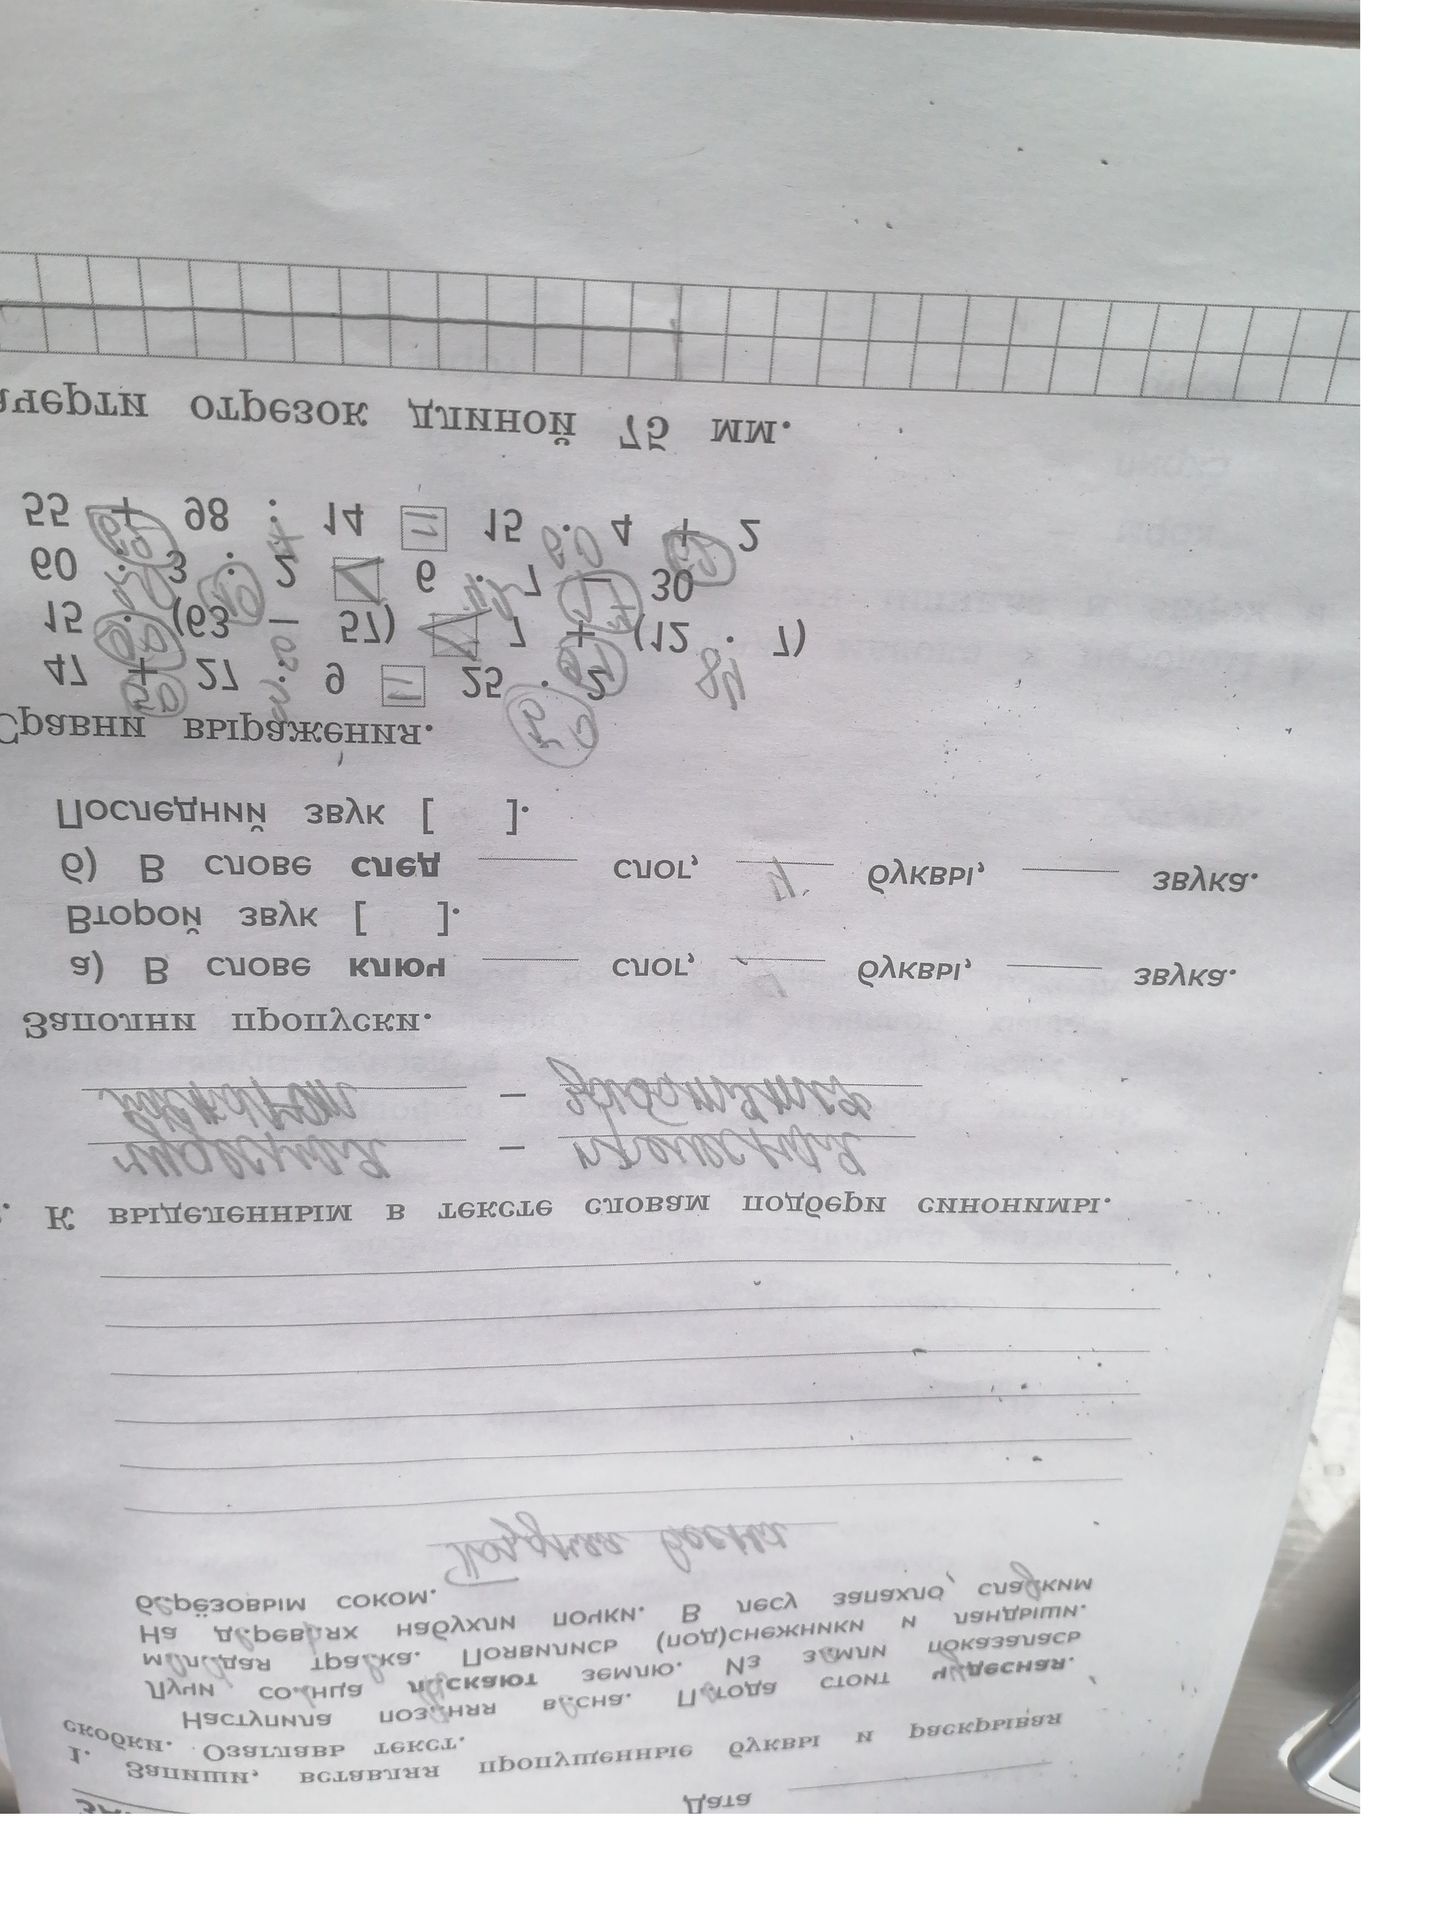 Дата
1. Запиши, вставляя пропущенные буквы и раскрывая
скобки. Озаглавь текст.
Наступила поздняя весна. Погода стоит чудесная.
Лучи солнца ласкают землю. Из земли показалась
молодая травка. Появились (под)снежники и ландыши.
На деревьях набухли почки. В лесу запахло сладким
берёзовым соком.
Поздняя весна
К выделенным в тексте словам подбери синонимы.
чудесная – прелестная
– заботятся
Заполни пропуски.
а) В слове ключ слог, буквы, звука.
Второй звук [ ].
б) В слове след слог, 4 буквы, звука.
Последний звук [ ].
Сравни выражения.
47 + 27 : 9 = 25 · 2
15 · (63 – 57) < 7 + (12 · 7)
60 : 3 : 2 < 6 · 7 – 30
55 + 98 : 14 = 15 · 4 + 2
ачерти отрезок длиной 75 мм.